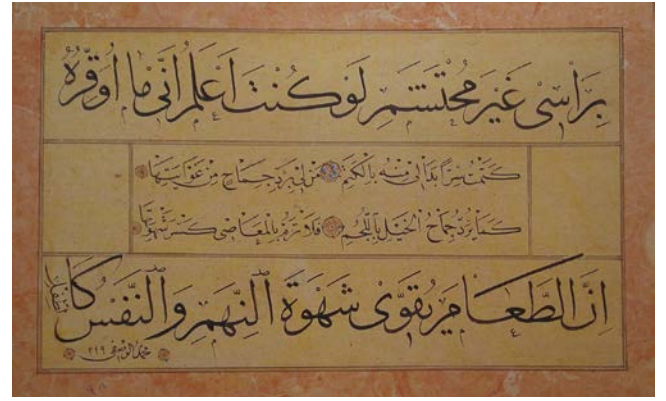 بِرَأْسِى غَيْرَ مُحْتَشَمِ لَوْ كُنْتُ اَعْلَمُ اَنِّى مَا اُوَقِّرُهُ
كَتَمْتُ سِرًّا بَدَا لِى مِنْهُ بِالْكَتَمِ مَنْ لِى بِرَدِّ جِمَاحٍ مِنْ غَوَايَتِهَا
كَمَا يُرَدُّ جِمَاحُ الْخَيْلِ بِاللُّجُمِ فَلَا تَرُمْ بِالْمَعَاصِى كَسْرَ شَهْوَتِهَا
اِنَّ الطَّعَامَ يُقَوِّى شَهْوَةَ النَّهِمِ وَالنَّفْسُ كَالطفل ان
محمد الوصفى